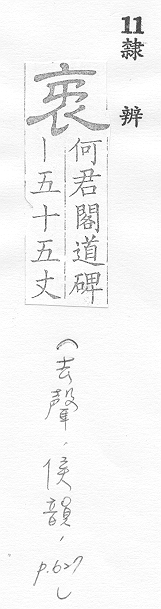 11隸辨
袤
何君閣道碑
｜五十五丈
（去聲，候韻，p.627）